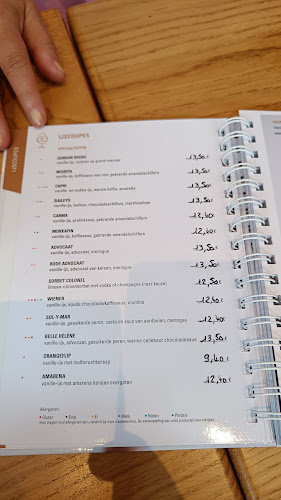 IJSCOUPES
SPECIALITEITEN
GORDON ROUGE 13,50
vanille-ijs, op grand marnier
NEGRITA 13,50
CAPRI 13,50
vanille- en mokka-ijs, warme koffie, amaretto
BAILEYS 13,50
vanille-ijs, baileys, chocoladeschilfers, marshmallow
CARMA 12,40
vanille-ijs, pralinésaus, gebrande amandelschilfers
MOKKAFIN 12,40
vanille-ijs, koffiesaus, gebrande amandelschilfers
ADVOCAAT 13,50
vanille-ijs, advocaat, meringue
RODE ADVOCAAT 13,50
vanille-ijs, advocaat van kersen, meringue
SORBET COLONEL 12,50
limoen-citroensorbet met vodka of champagne (naar keuze)
WIENER 12,40
vanille-ijs, koude chocolade/koffiesaus, crumble
SOL-Y-MAR 12,40
vanille-ijs, gesuikerde peren, zoetzure saus van aardbeien, meringue
BELLE HÉLÈNE 13,50
vanille-ijs, advocaat, gesuikerde peren, warme callebaut chocoladesaus
ORANGEFLIP 9,40
vanille-ijs met multivruchtensap
AMARENA 12,40
vanille-ijs met amarena kersjes overgoten
Allergenen:
Gluten Soja Ei Melk Noten Pinda's